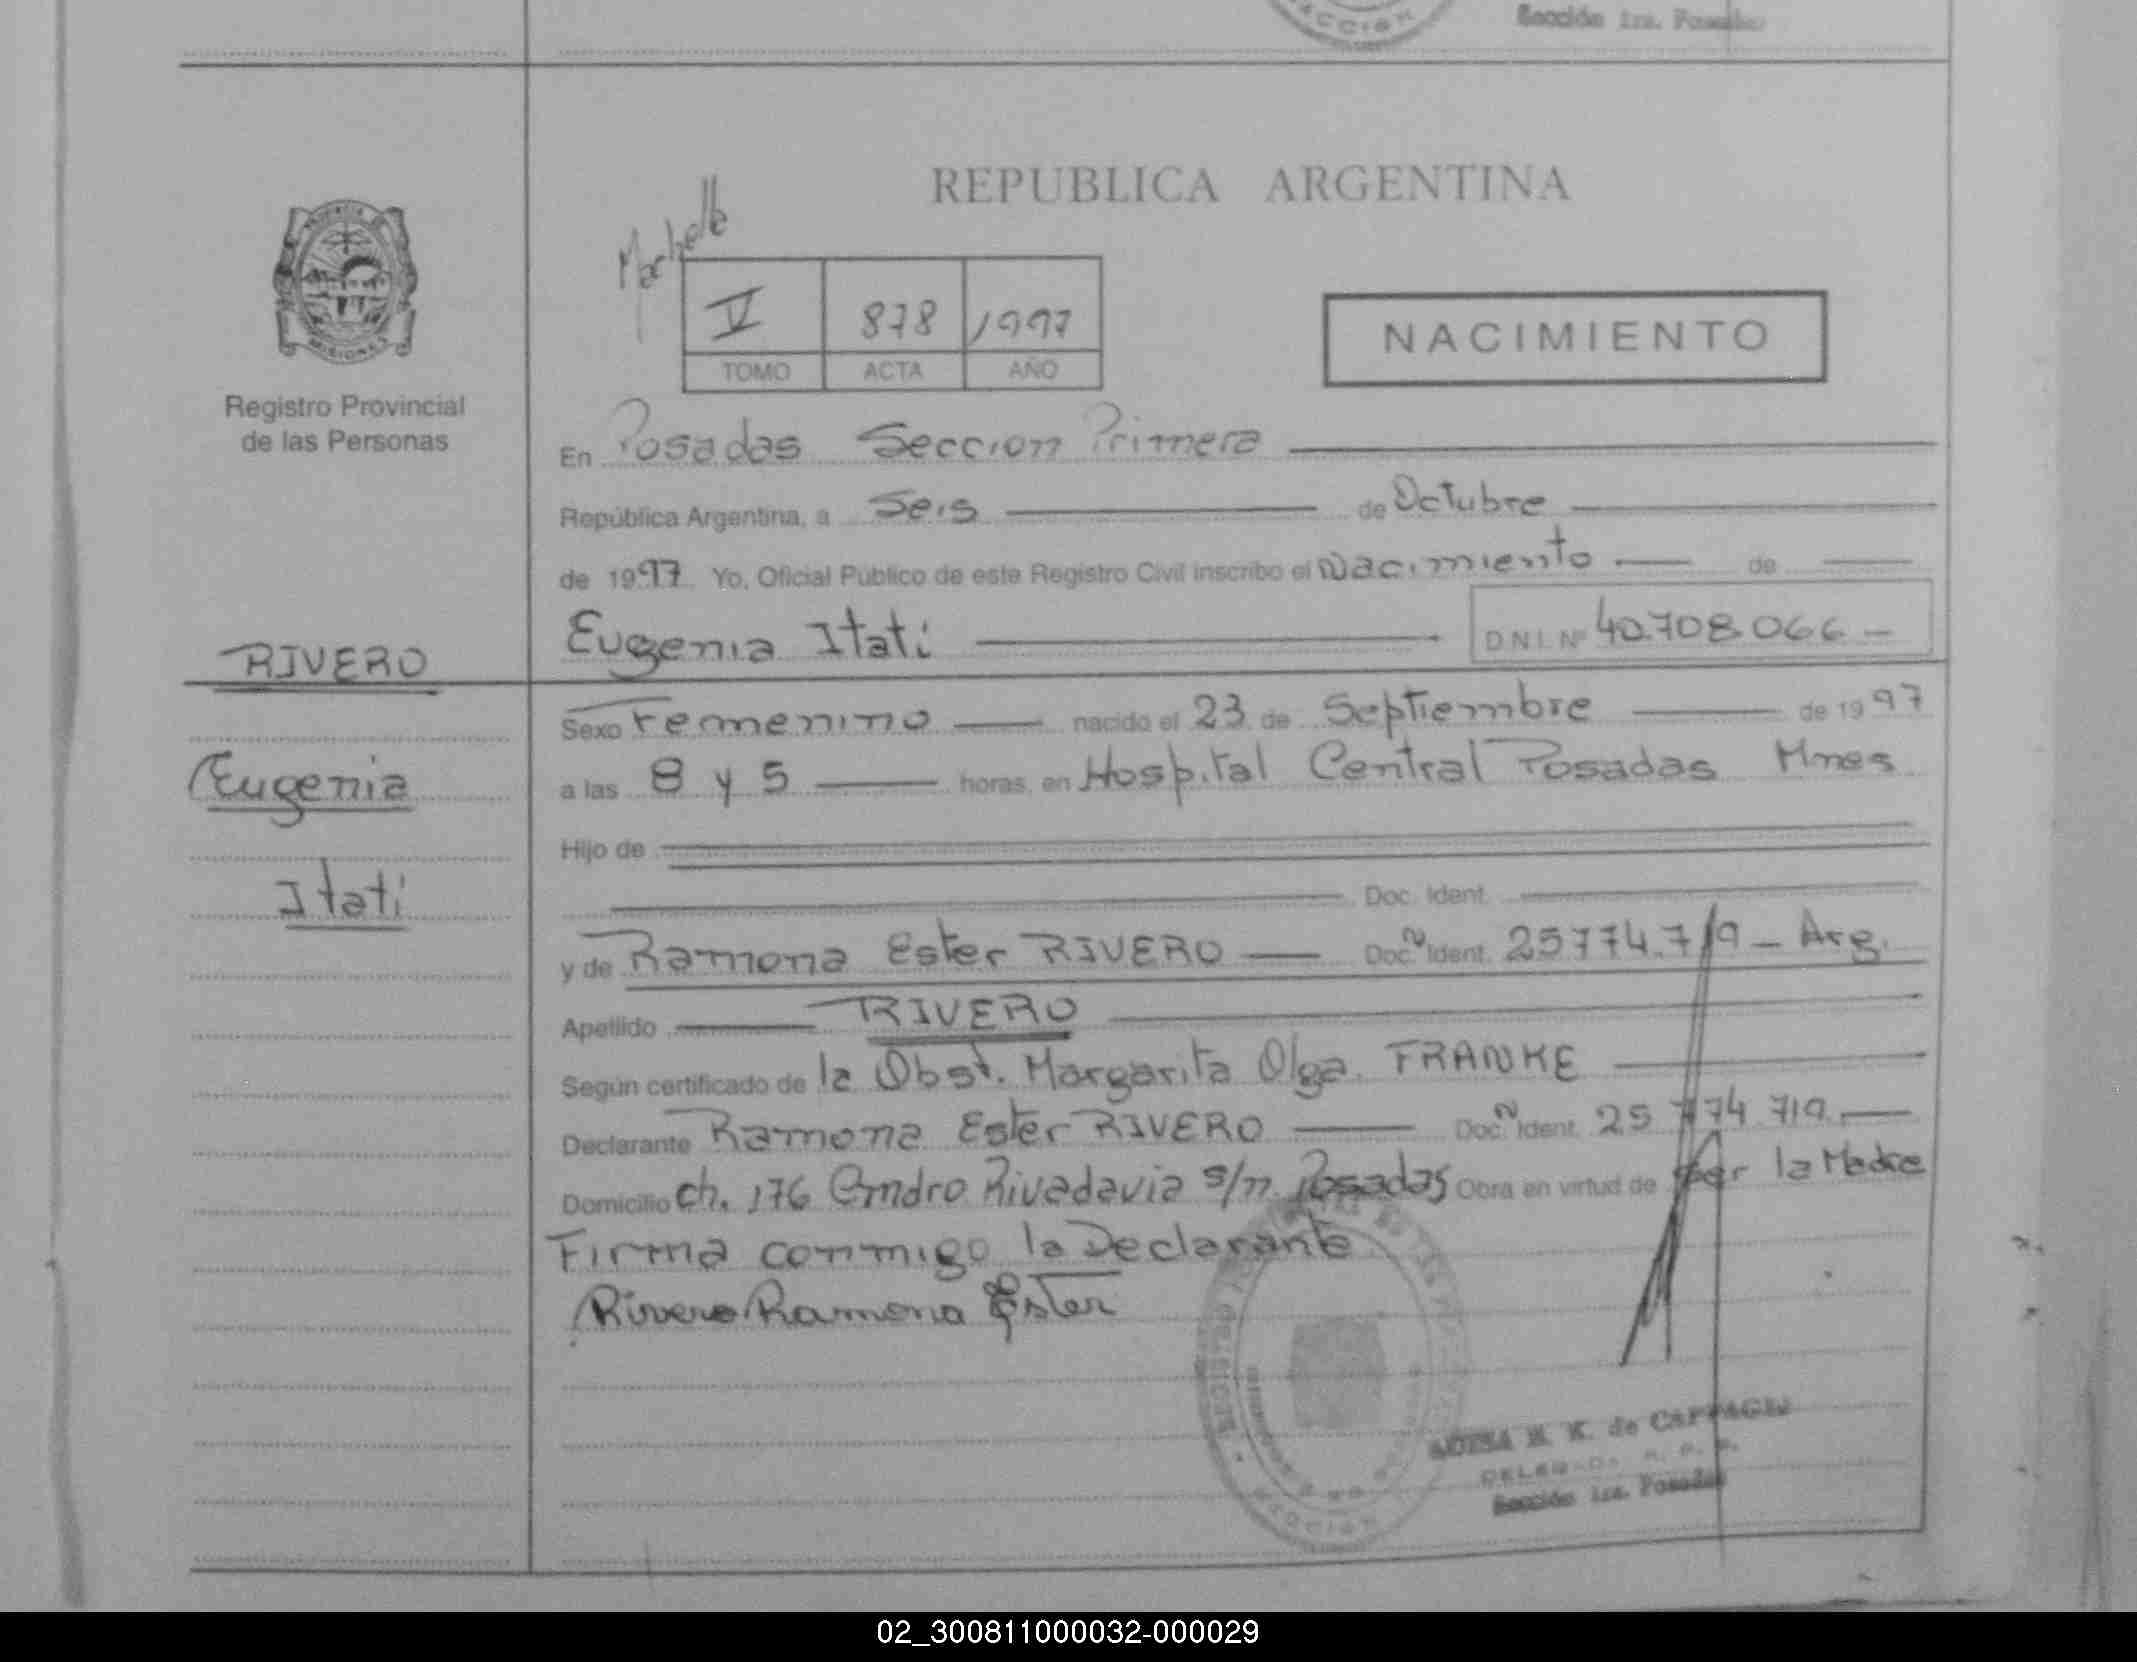 Sección 1ra. Posadas
REPUBLICA ARGENTINA
V 878 1997
TOMO ACTA AÑO
NACIMIENTO
MISIONES
Registro Provincial
de las Personas
En Posadas Seccion Primera
República Argentina, a Seis de Octubre
de 1997 Yo, Oficial Público de este Registro Civil inscribo el Nacimiento de
RIVERO
Eugenia Itati D.N.I. Nº 40.708.066
Eugenia
Itati
Sexo Femenino nacido el 23 de Septiembre de 1997
a las 8 y 5 horas, en Hospital Central Posadas Mnes
Hijo de
Doc. Ident.
y de Ramona Ester RIVERO Doc. Ident. 25774.719 - Arg.
Apellido RIVERO
Según certificado de la Obst. Margarita Olga FRANKE
Declarante Ramona Ester RIVERO Doc. Ident. 25 774 719.
Domicilio ch. 176 Emdro Rivadavia s/n. Posadas Obra en virtud de ser la Madre
Firma conmigo la Declarante
Rivero Ramona Ester
M. K. de
Sección 1ra. Posadas
02_300811000032-000029